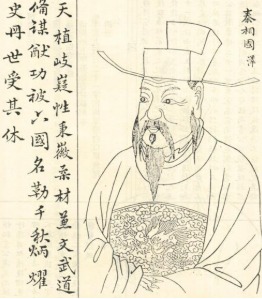 秦相國澤
天植岐嶷性秉徽柔材兼文武道
俻謀猷功被六國名勒千秋炳耀
史冊世受其休